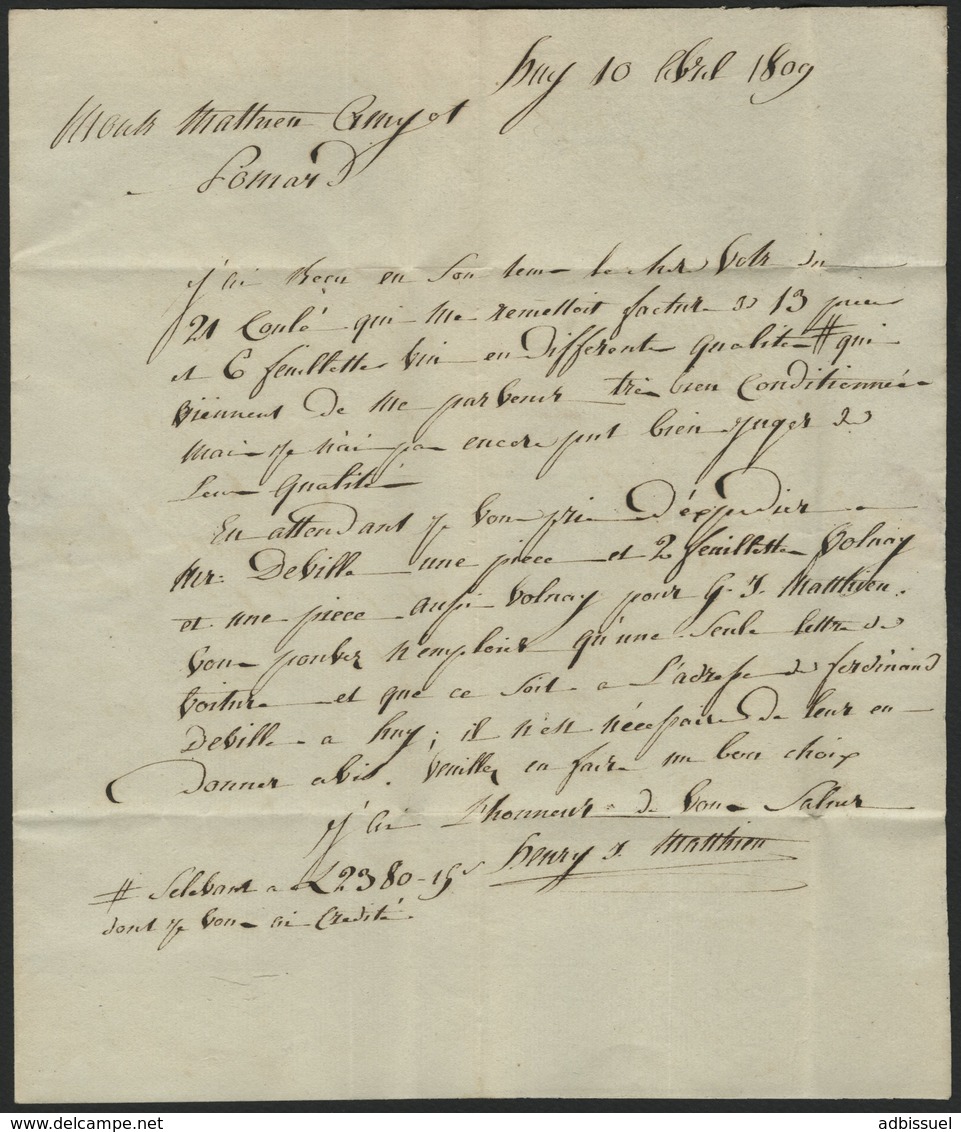 huy 10 Avril 1809
Mathieu Amyot
Pomard
j'ai Reçu en Son tems le votre du
21 Coulé qui me remettoit facture de 13 pieces
et 6 feuillettes vin en Differentes qualités # qui
viennent De me parvenir très bien Conditionnées
mais je n'ai pas encore put bien juger de
Leur qualité
En attendant je vous prie D'éxpedier a
Mr: Deville une piece et 2 feuillettes Volnay
et une piece aussi Volnay pour G. J. Matthieu.
vous pouvez n'emploier qu'une Seule lettre de
voiture et que ce Soit a L'adresse de ferdinand
Deville a huy; il n'est nécessaire De leur en
Donner avis. Veuillez en faire un bon choix
J'ai L'honneur de vous Saluer
henry J. Matthieu
# S'elevant a L 2380-15s
dont je vous ai Credité.
adbissuel